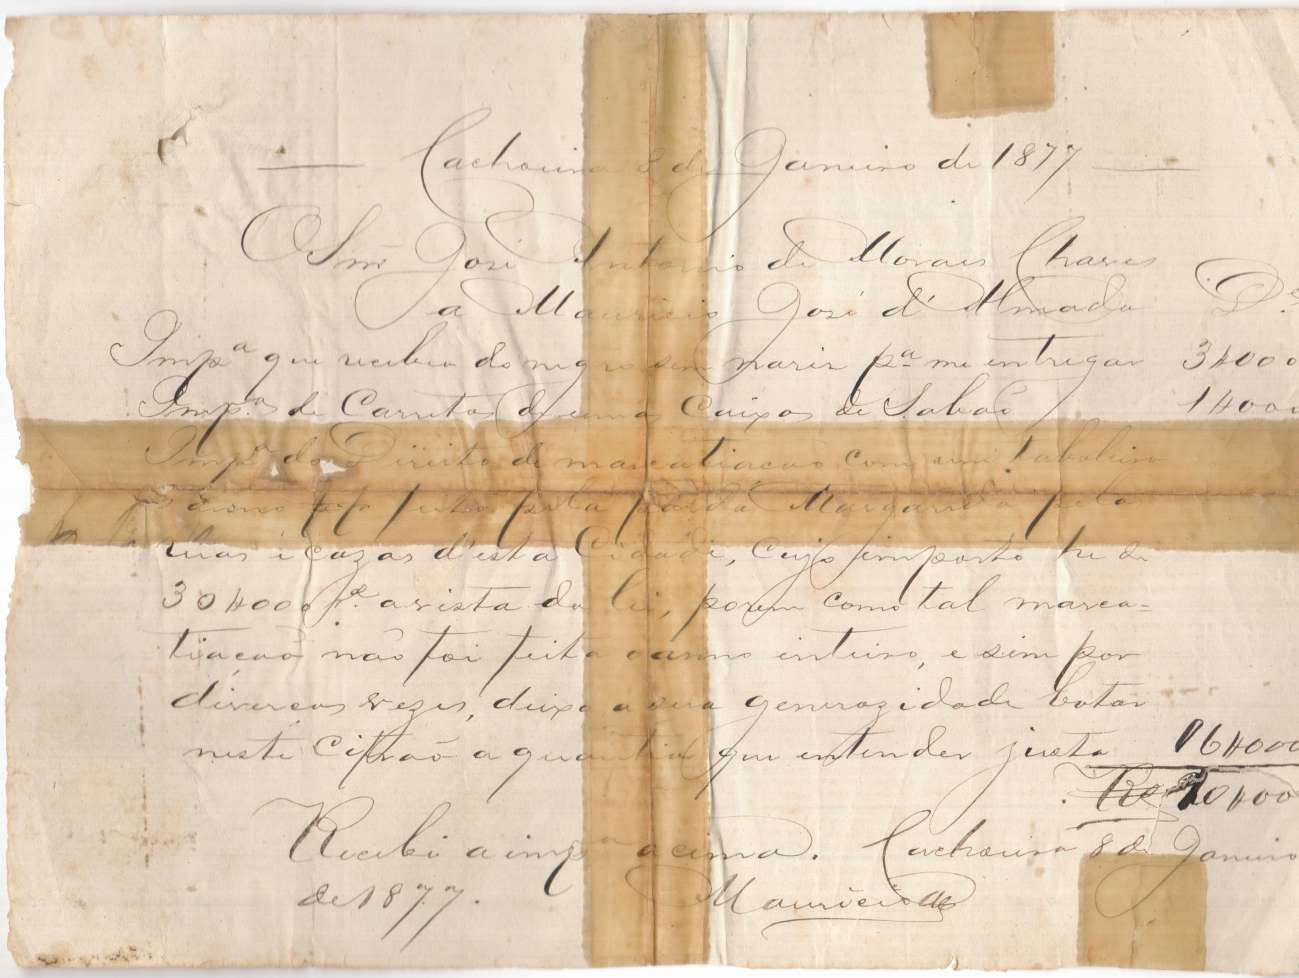 Cachoeira 8 de Janeiro de 1877
O Snr. José Antonio de Moraes Chaves
a Mauricio José d'Almada De
Imp.a que recebeu do negro sem narir p.a me entregar 3#000
Imp.os de Carretos de umas Caixas de Sabaõ 1#000
Imp.a do Direito de mascatiacaõ com um taboleiro
feito pela parda Margarida pelas
ruas i cazas d'esta Cidade, cujo importo he de
30#000 r.s a vista da lei, porem como tal marca-
tiacaõ não foi feita o anno inteiro, e sim por
divercas vezes, deixo a sua generozidade botar
neste Cifraõ a quantia que entender justa 16#000
Rs 20#000
Recebi a imp.a acima. Cachoeira 8 de Janeiro
de 1877.
Mauricio de